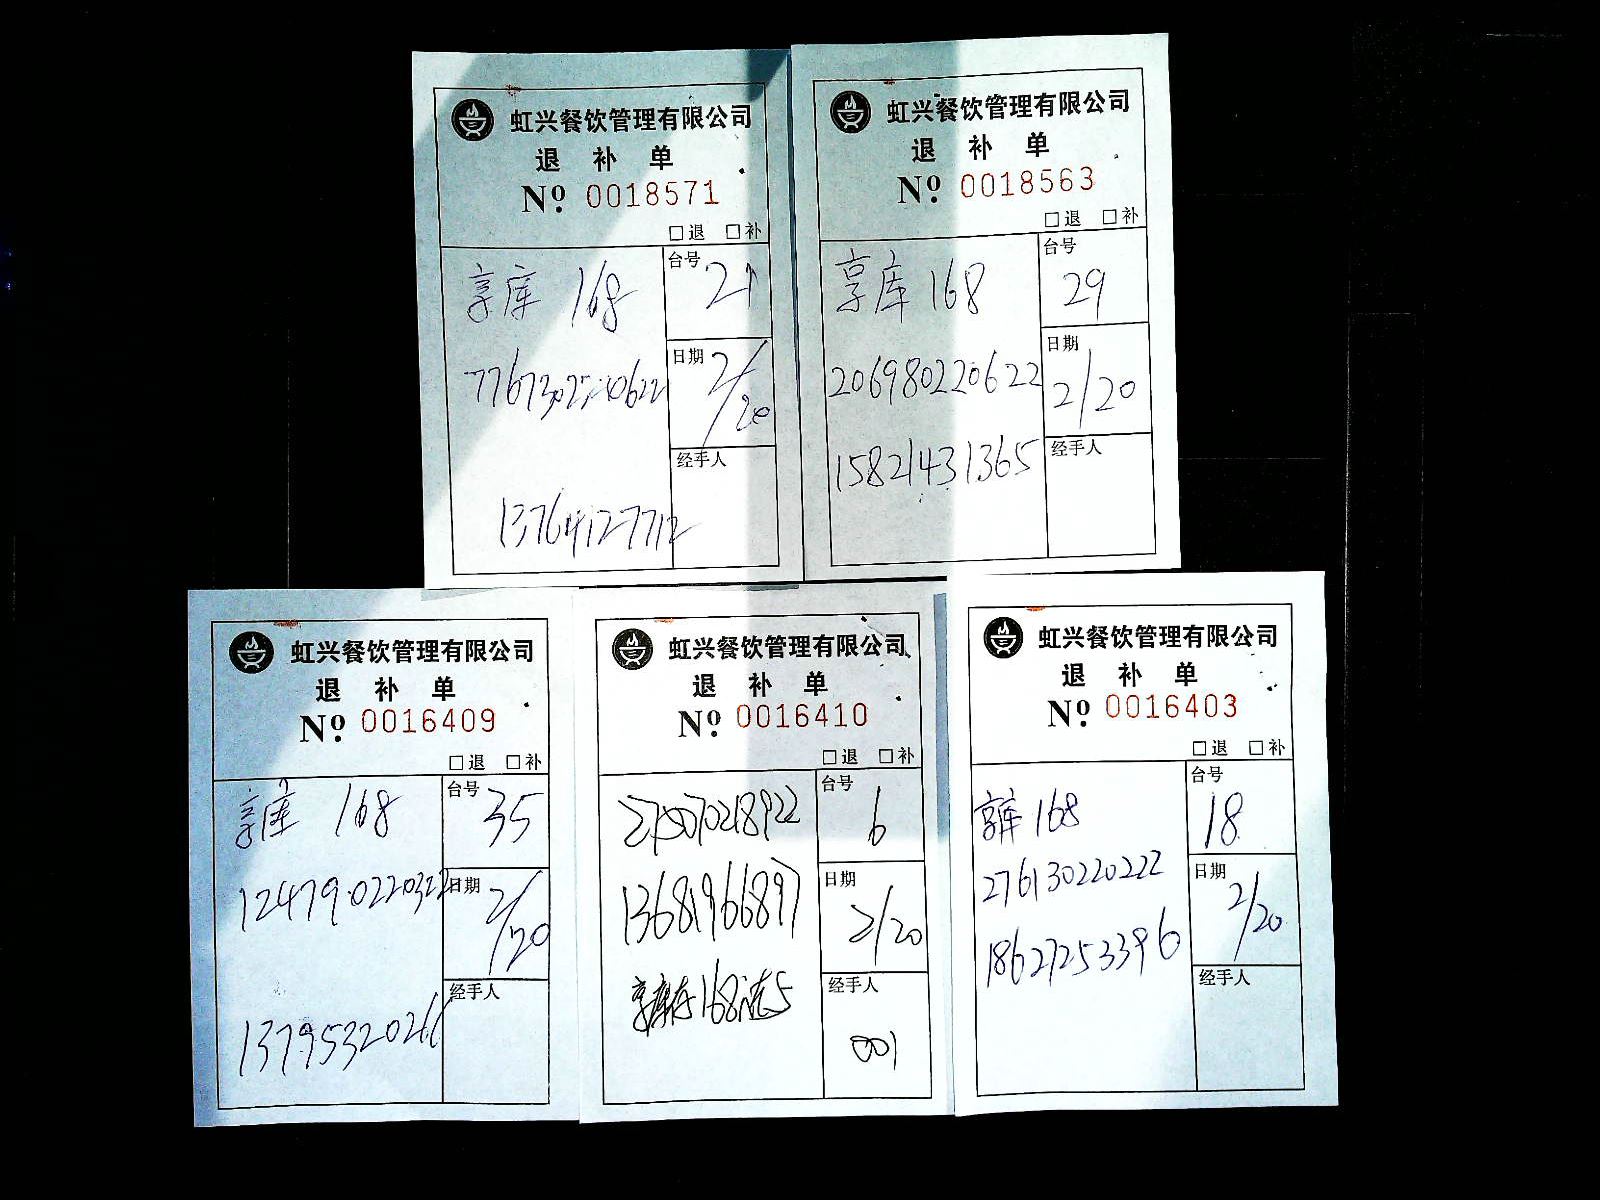 虹兴餐饮管理有限公司
退 补 单
Nº 0018571
□退 □补
享库 168
台号 21
日期 2/20
经手人
13764127712
虹兴餐饮管理有限公司
退 补 单
Nº 0018563
□退 □补
享库 168
台号 29
206980220622
日期 2/20
15821431365
经手人
虹兴餐饮管理有限公司
退 补 单
Nº 0016409
□退 □补
享库 168
台号 35
124790220322
日期 2/20
经手人
虹兴餐饮管理有限公司
退 补 单
Nº 0016410
□退 □补
台号 6
13681966897
日期 2/20
168
经手人
001
虹兴餐饮管理有限公司
退 补 单
Nº 0016403
□退 □补
享库 168
台号 18
276130220222
日期 2/20
18627253396
经手人